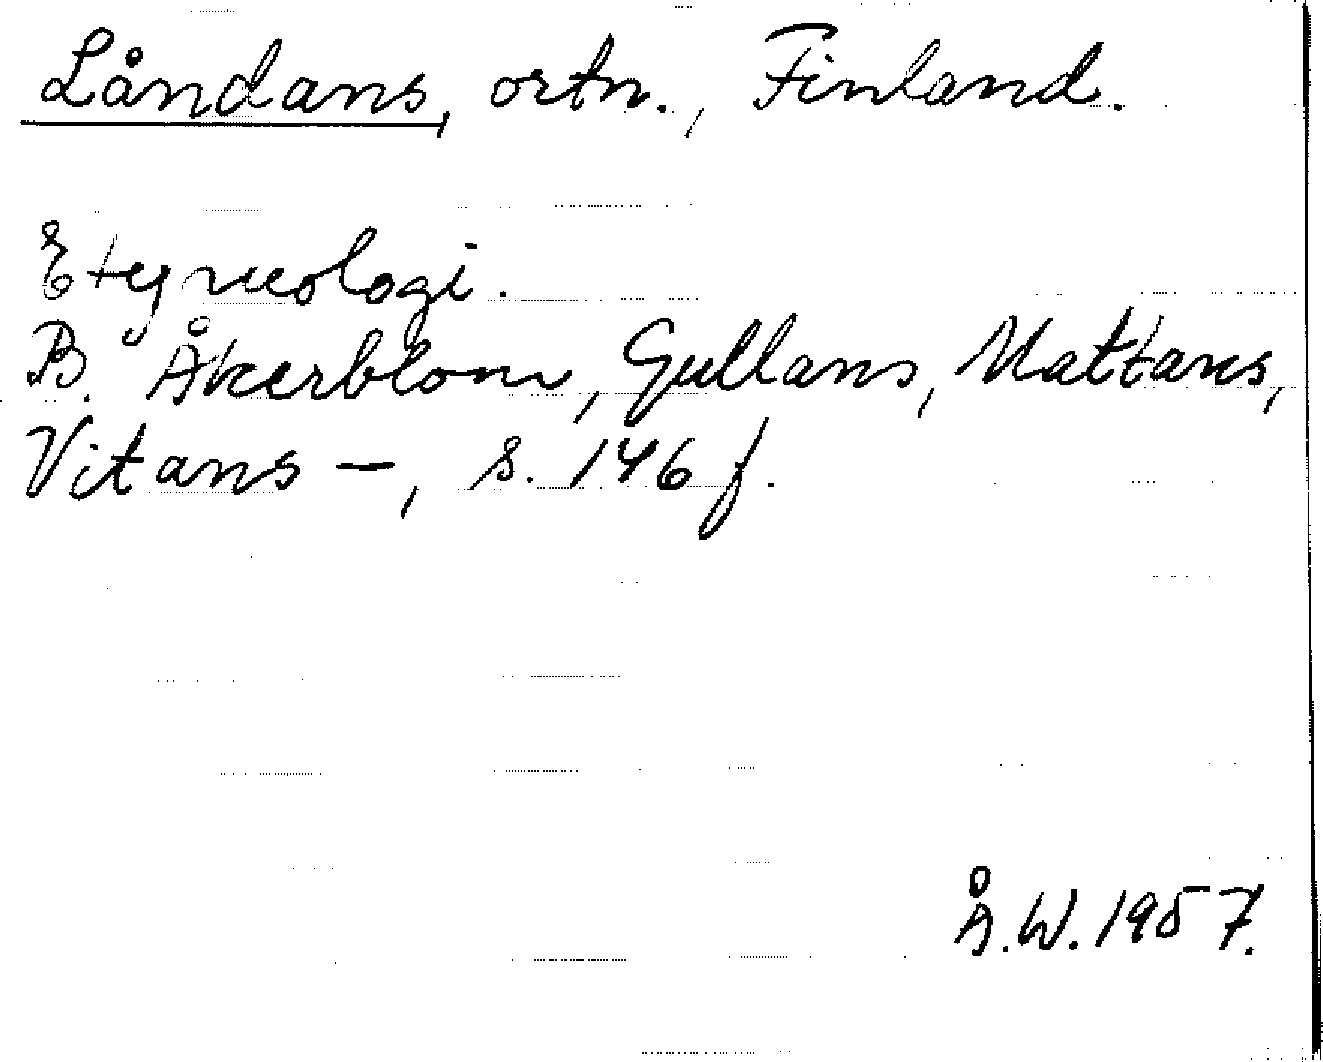 Låndans, ortn., Finland.
Etymologi.
B. Åkerblom, Gullans, Mattans,
Vitans –, s. 146 f.
Å.W. 1957.